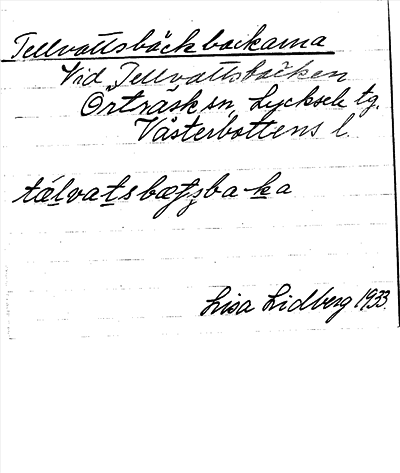 Tellvattsbäckbackarna
Vid Tellvattsbäcken
Örträsk sn, Lycksele tg.
Västerbottens l.
Lisa Lidberg 1933.